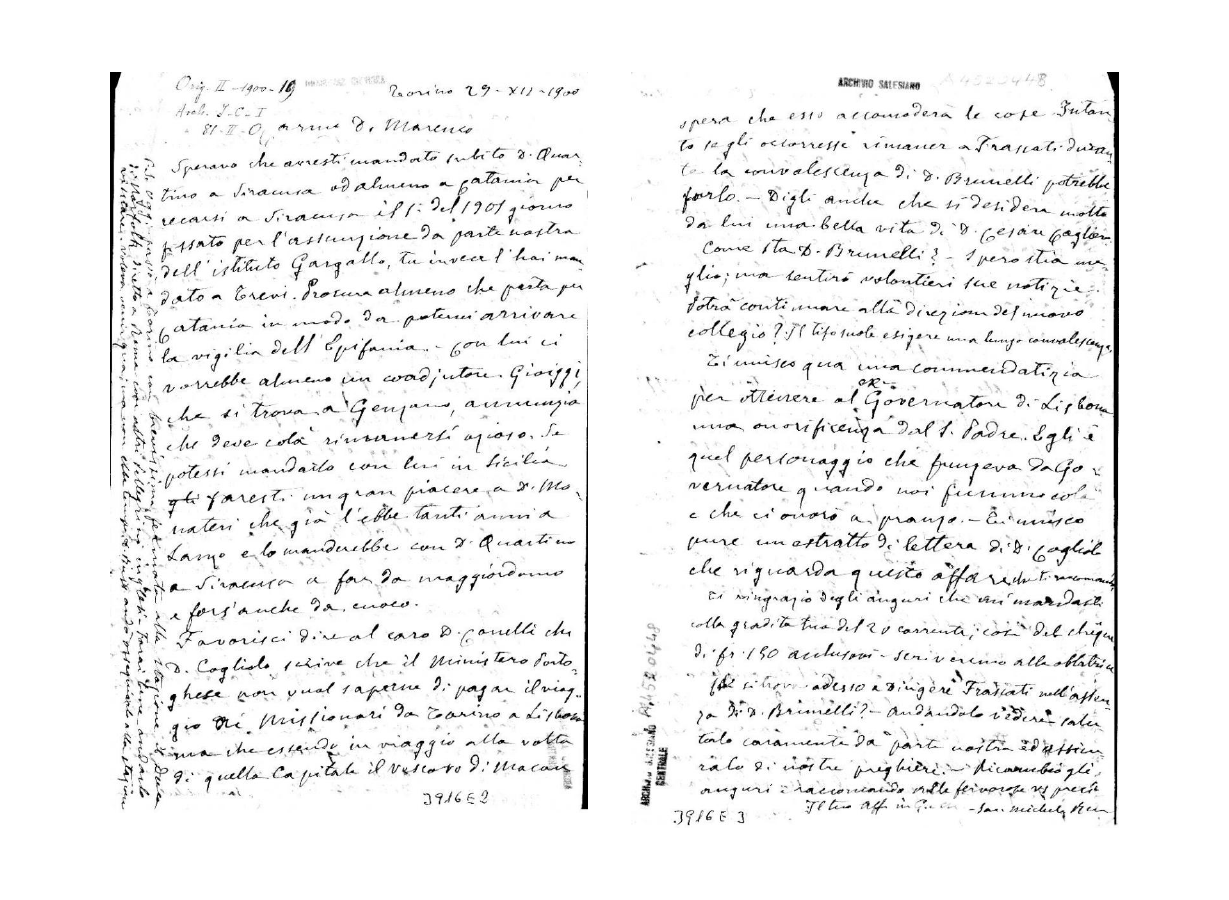 Orig. II-1900-19
Torino 29-XII-1900
Arch. S.C.-I
81-II-O
Carmo D. Marenco
Speravo che avresti mandato subito D. Quar-
tino a Siracusa od almeno a Catania per
recarsi a Siracusa il 1: del 1901 giorno
fissato per l'assunzione da parte nostra
dell'istituto Gargallo, tu invece l'hai man
dato a Trevi. Procura almeno che parta per
Catania in modo da potervi arrivare
la vigilia dell'Epifania. - Con lui ci
vorrebbe almeno un coadjutore. Gioiggi,
che si trova a Genzano, annunzia
che deve colà rimanersi ozioso. Se
potessi mandarlo con lui in Sicilia
gli faresti un gran piacere a D. Mo-
nateri che già l'ebbe tanti anni a
Lanzo e lo manderebbe con D. Quartino
a Siracusa a far da maggiordomo
e fors'anche da cuoco.
Favorisci dire al caro D. Canelli che
D. Cogliolo scrive che il Ministero Porto-
ghese non vuol saperne di pagar il viag-
gio dei Missionari da Torino a Lisbona
ma che essendo in viaggio alla volta
di quella Capitale il vescovo di Macau
3916E2
ARCHIVIO SALESIANO
A4520448
spera che esso accomoderà le cose. Intan
to se gli occorresse rimaner a Frascati duran
te la convalescenza di D. Brunelli potrebbe
farlo. - Digli anche che si desidera molto
da lui una bella vita di D. Cesare Cagliero
Come sta D. Brunelli? - Spero stia me-
glio; ma sentirò volontieri sue notizie.
Potrà continuare alla direzione del nuovo
collegio? Il tifo suole esigere una lunga convalescenza.
Ti unisco qua una commendatizia
per ottenere al Governatore di Lisbona
ex-
una onorificenza dal S. Padre. Egli è
quel personaggio che fungeva da Go-
vernatore quando noi fummo colà
e che ci onorò a pranzo. - Ti unisco
pure un estratto di lettera di D. Cogliolo
che riguarda questo affare che ti raccomando
Ti ringrazio degli auguri che mi mandasti
colla gradita tua del 20 corrente; così del chèque
di fr. 150 acclusovi - scriveremo alla oblatrice
si trova adesso a dirigere Frascati nell'assen
za di D. Brunelli? - Andandolo a vedere salu
talo caramente da parte nostra ed assicu
ralo di nostre preghiere. - Ricambio gli
auguri e raccomando alle fervorose vs preci
Il tuo aff in G. - Sac. Michele Rua
ARCHIVIO SALESIANO
CENTRALE
3916E3